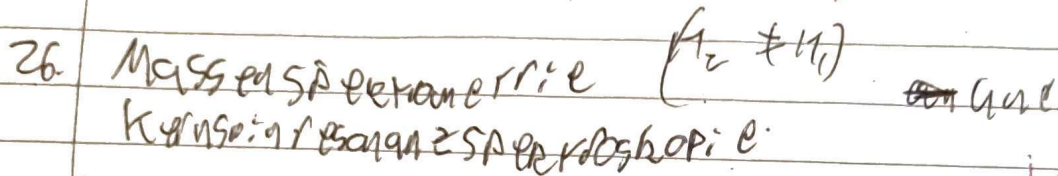 26. Massenspektrometrie (H₂ ≠ H₁) und
Kernspinresonanzspektroskopie.